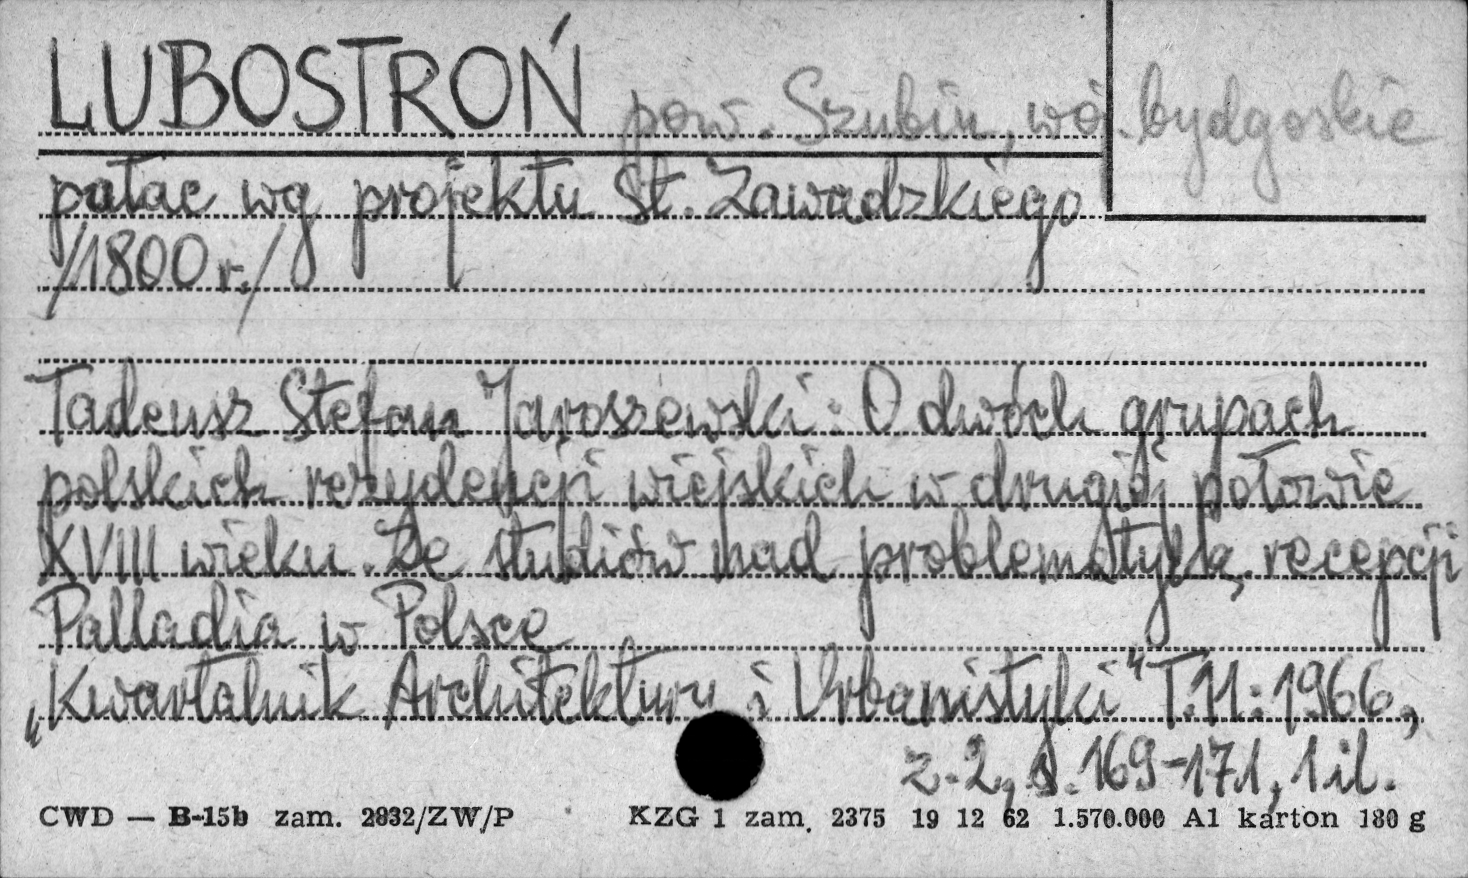 LUBOSTROŃ pow. Szubin, wo. bydgoskie
pałac wg projektu St. Zawadzkiego
/1800 r./
Tadeusz Stefan Jaroszewski: O dwóch grupach
polskich rezydencji wiejskich w drugiej połowie
XVIII wieku. Ze studiów nad problematyką recepcji
Palladia w Polsce
„Kwartalnik Architektury i Urbanistyki" T.11:1966,
z.2, s.169-171, 1 il.
CWD — B-15b zam. 2832/ZW/P KZG 1 zam. 2375 19 12 62 1.570.000 A1 karton 180 g